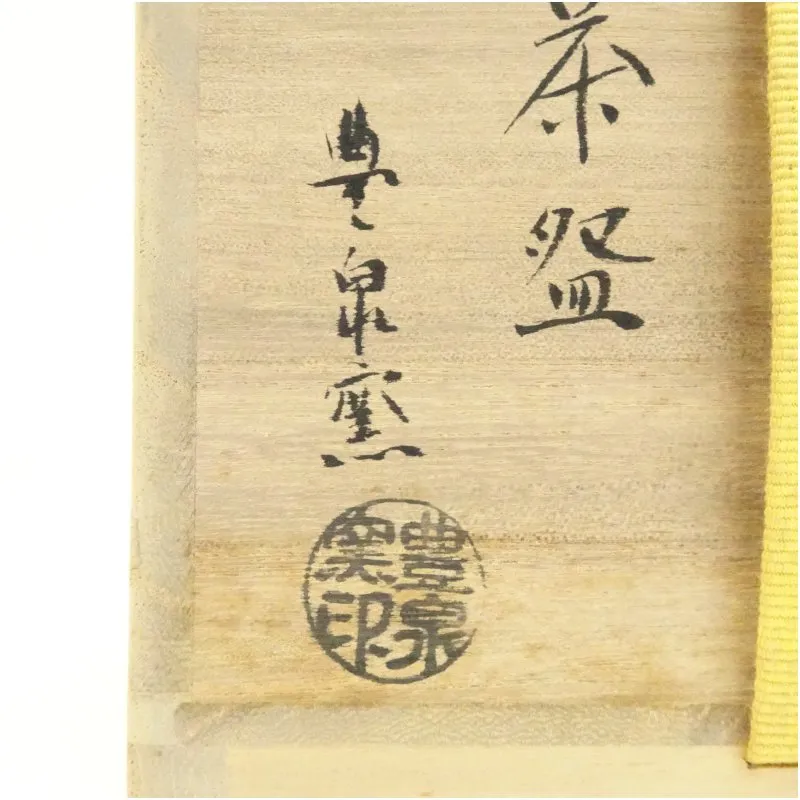 茶盌
豊泉窯
豊泉
窯印